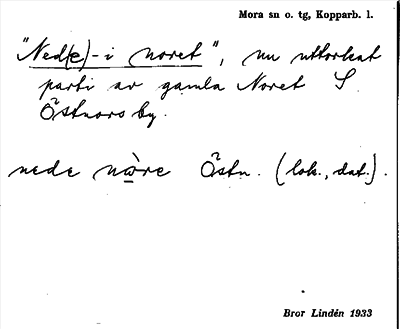 Mora sn o. tg, Kopparb. l.
"Ned(e)-i noret", nu uttorkat
parti av gamla Noret S
Östnors by.
nede nåre Östn. (lok., dat.).
Bror Lindén 1933